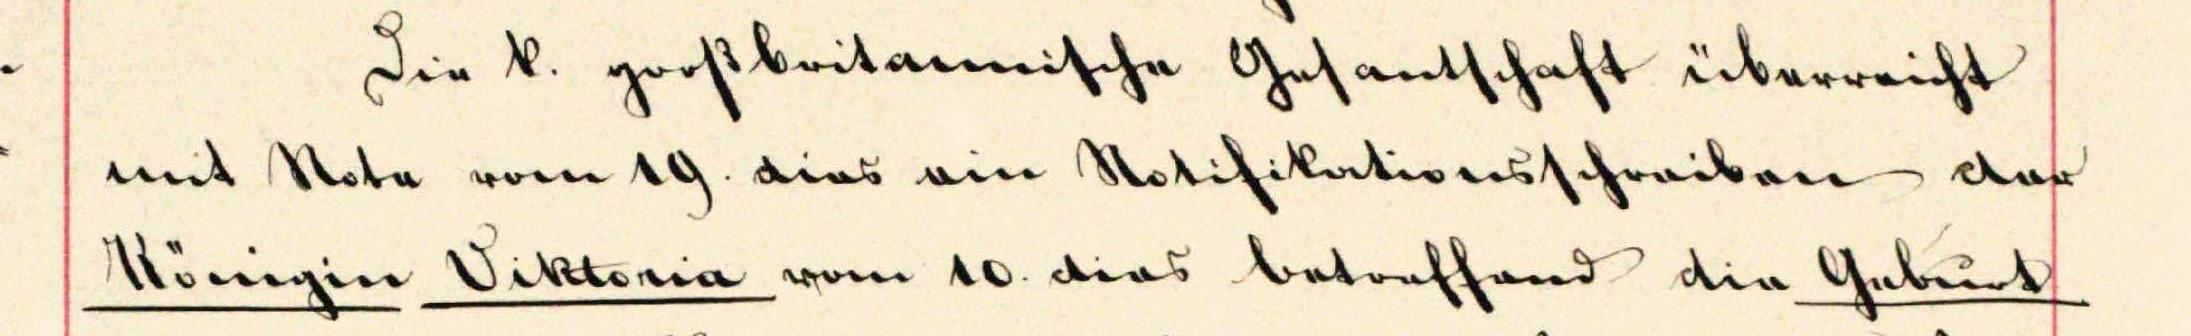 Die k. großbritannische Gesantschaft überreicht
mit Note vom 19. dies ein Notifikationsschreiben der
Königin Viktoria vom 10. dies betreffend die Geburt